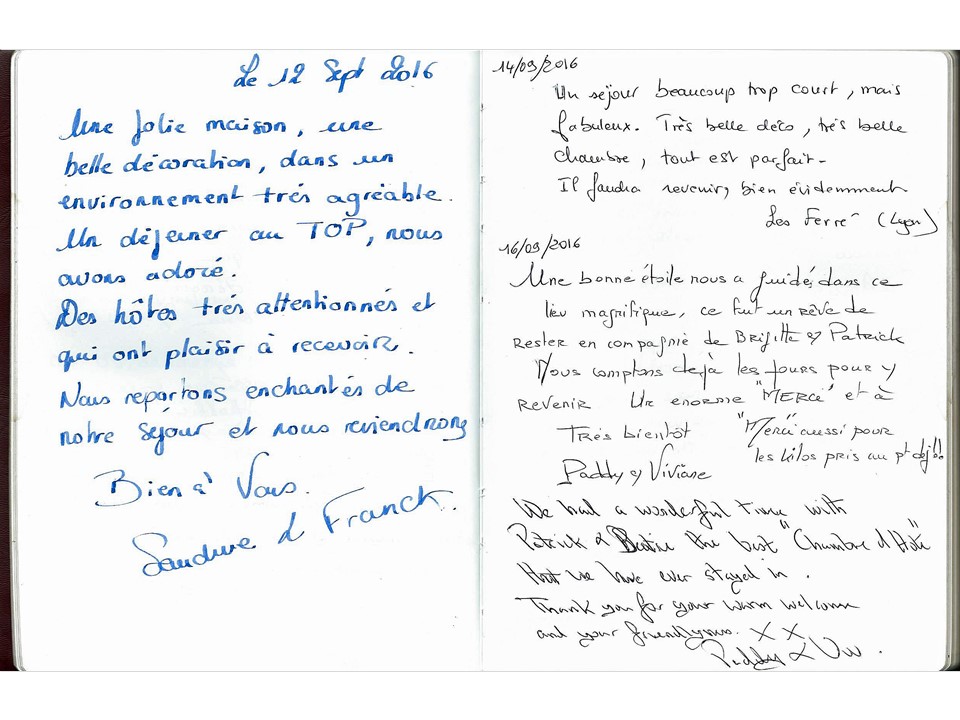 Le 12 Sept 2016
Une jolie maison, une
belle décoration, dans un
environnement très agréable.
Un déjeuner au TOP, nous
avons adoré.
Des hôtes très attentionnés et
qui ont plaisir à recevoir.
Nous repartons enchantés de
notre séjour et nous reviendrons
Bien à Vous.
Sandrine & Franck.
14/09/2016
Un séjour beaucoup trop court, mais
fabuleux. Très belle déco, très belle
chambre, tout est parfait-
Il faudra revenir, bien évidemment
Les Ferré (Lyon)
16/09/2016
Une bonne étoile nous a guidé, dans ce
lieu magnifique, ce fut un rêve de
rester en compagnie de Brigitte & Patrick
Nous comptons dejà les jours pour y
revenir Un enorme "MERCi" et à
Très bientôt
"Merci" aussi pour
les kilos pris au pt dèj!!
Paddy & Viviane
We had a wonderful time with
Patrick & the best "Chambre d'Hôte"
that we have ever stayed in.
Thank you for your warm welcome
and your friendlyness. X X
Paddy & Viv.